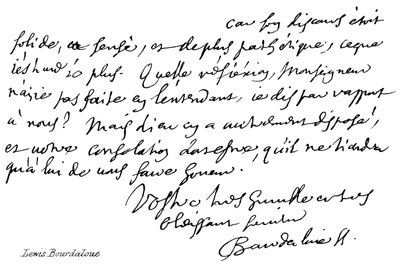 car son discours étoit
solide, et sensé, et de plus pathétique, ce que
plus. Quelle réfléxion, Monseigneur
n'ai je pas faite en l'entendant, je dis par rapport
à nous? Mais dieu en a autrement disposé,
et notre consolation doit estre, qu'il ne tiendra
qu'à lui de nous
Vostre tres humble et tres
obeissant serviteur
Bourdaloue
Lewis Bourdaloue